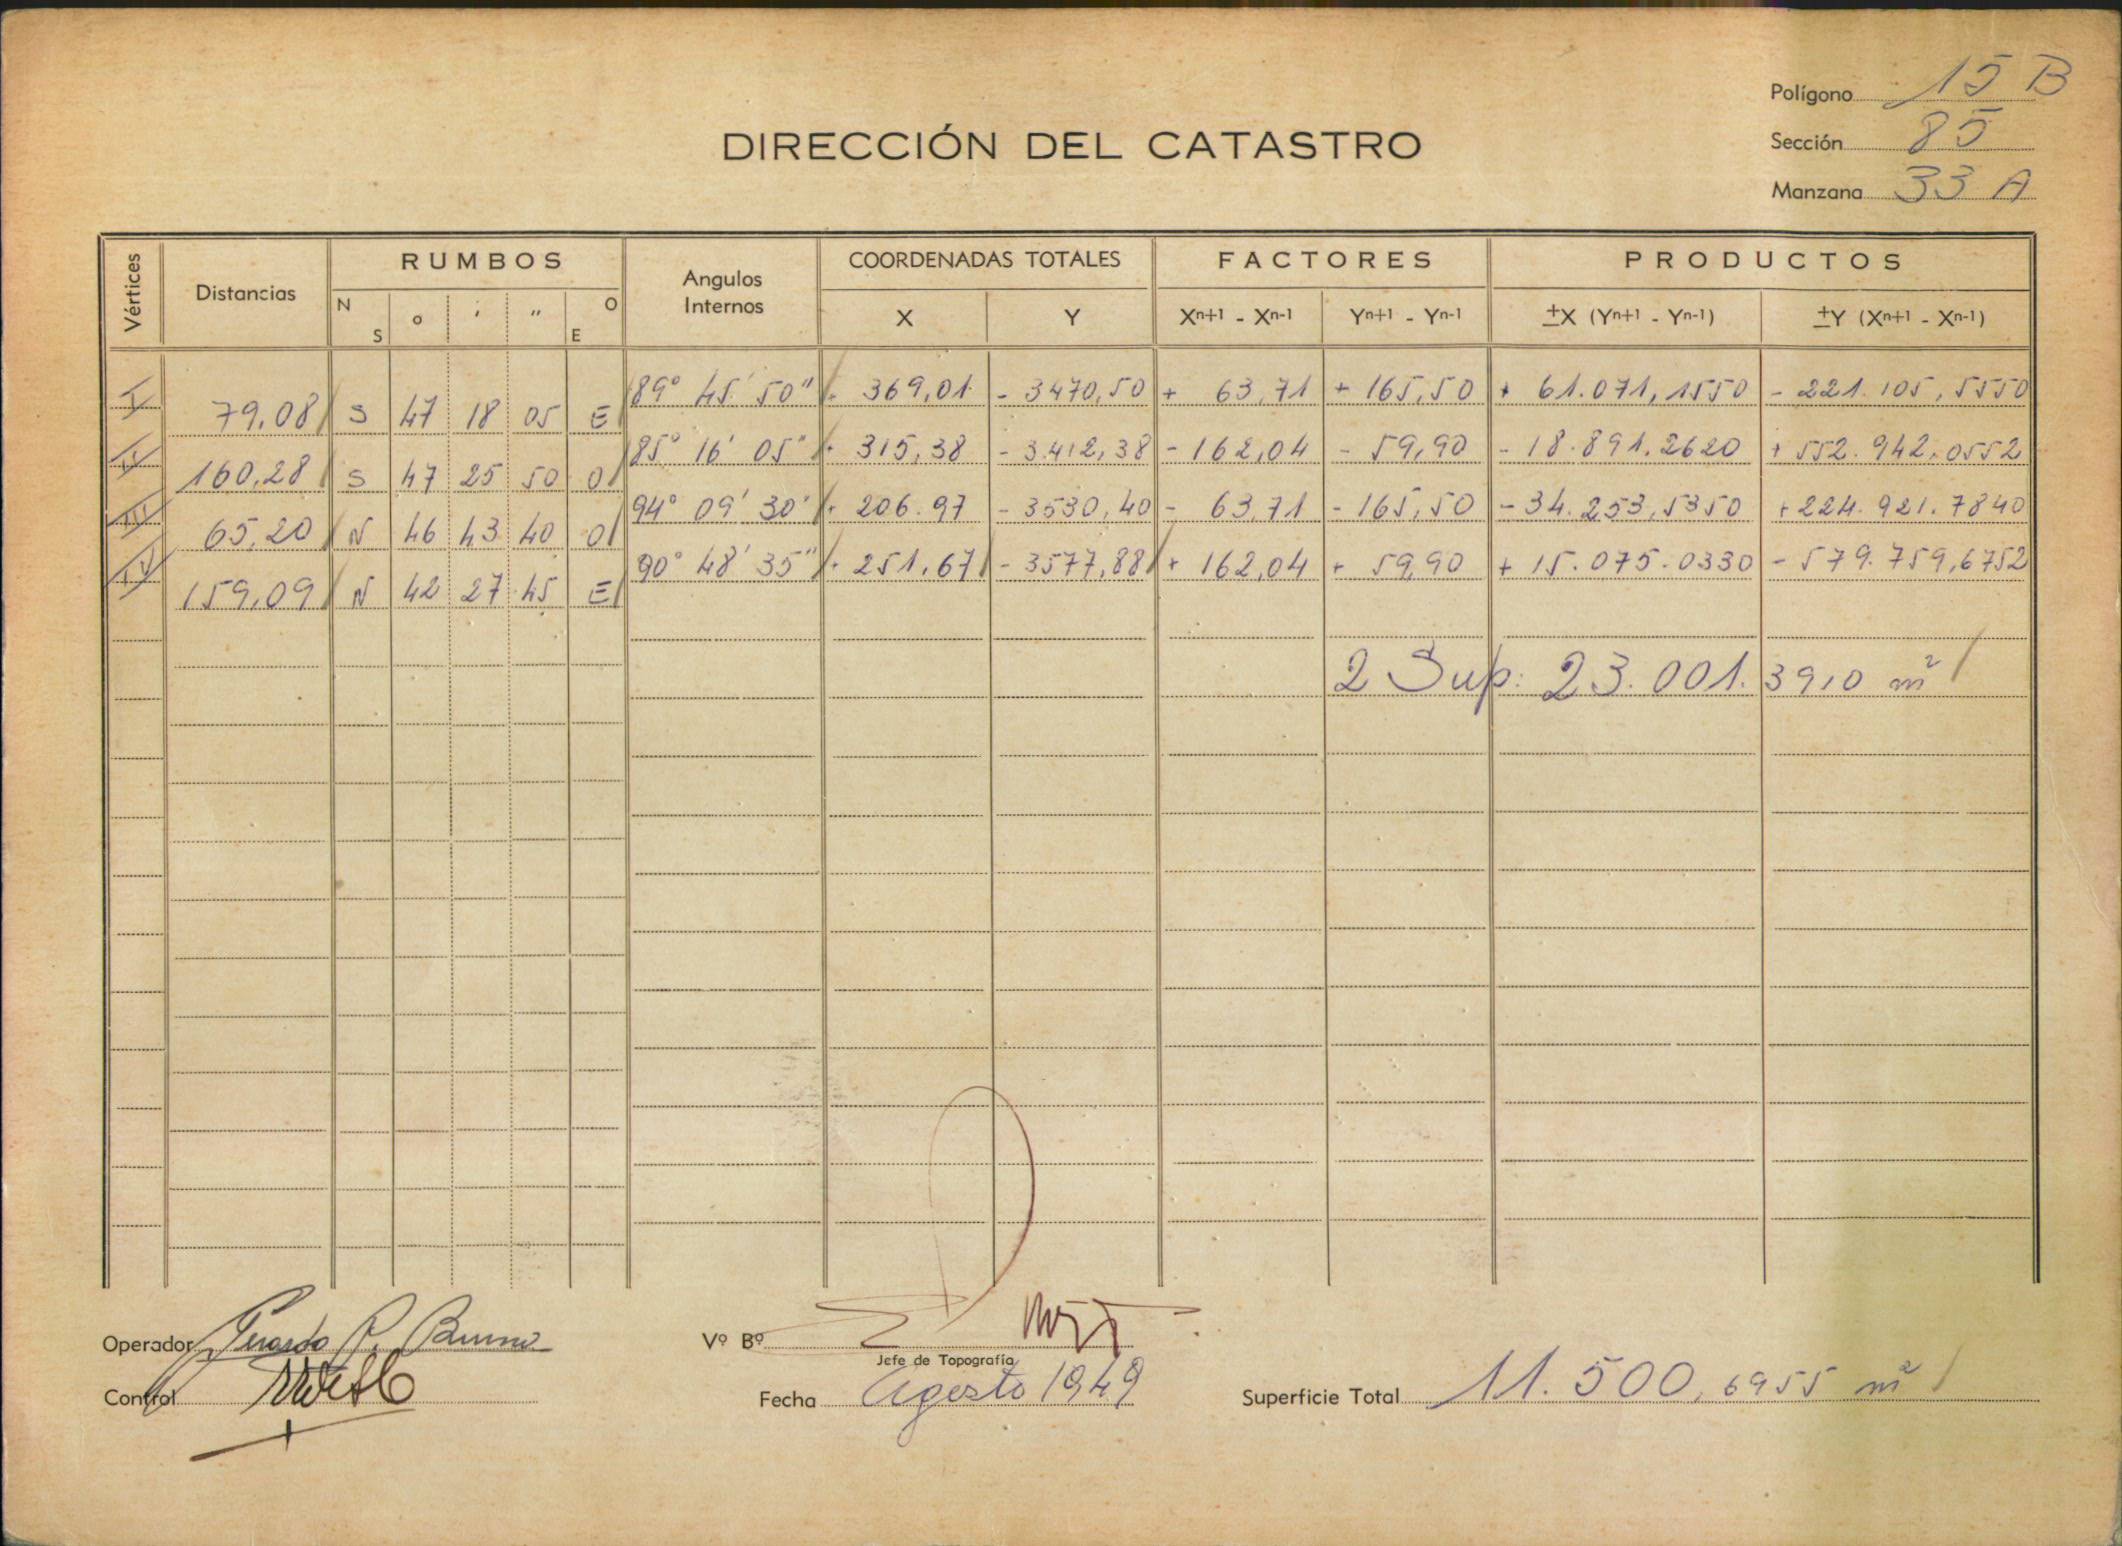 Polígono 15 B
DIRECCIÓN DEL CATASTRO
Sección 85
Manzana 33 A
Vértices Distancias RUMBOS Angulos Internos COORDENADAS TOTALES FACTORES PRODUCTOS
N S o ' " O E X Y Xn+1 - Xn-1 Yn+1 - Yn-1 ±X (Yn+1 - Yn-1) ±Y (Xn+1 - Xn-1)
I 89° 45' 50" + 369,01 - 3470,50 + 63,71 + 165,50 + 61.071,1550 - 221.105,5550
79,08 S 47 18 05 E
II 85° 16' 05" + 315,38 - 3412,38 - 162,04 - 59,90 - 18.891.2620 + 552.942,0552
160,28 S 47 25 50 O
III 94° 09' 30" + 206.97 - 3530,40 - 63,71 - 165,50 - 34.253,5350 + 224.921.7840
65,20 N 46 43 40 O
IV 90° 48' 35" + 251,67 - 3577,88 + 162,04 + 59,90 + 15.075.0330 - 579.759,6752
159,09 N 42 27 45 E
2 Sup: 23.001.3910 m²
Operador Gerardo R.
Vº Bº
Jefe de Topografía
Control
Fecha Agosto 1949
Superficie Total 11.500,6955 m²